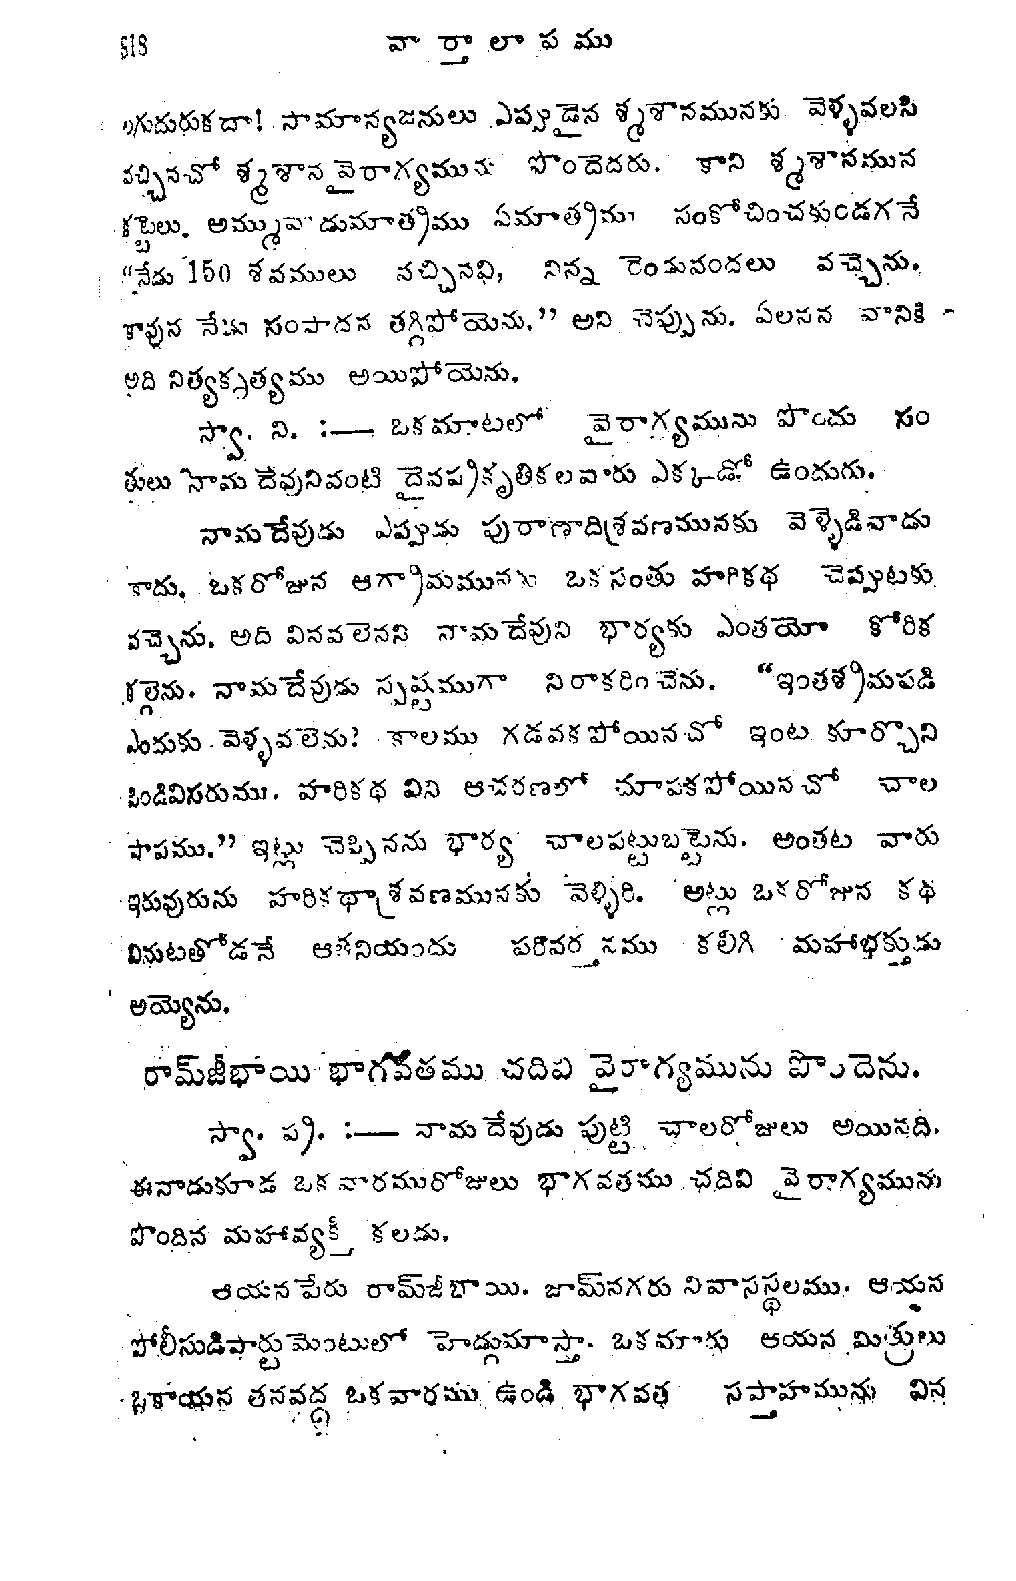 518 వార్తాలాపము
గుదురుకదా! సామాన్యజనులు ఎప్పుడైన శ్మశానమునకు వెళ్ళవలసి
వచ్చినచో శ్మశానవైరాగ్యమును పొందెదరు. కాని శ్మశానమున
కట్టెలు. అమ్మువాడుమాత్రము ఏమాత్రము సంకోచించకుండగనే
“నేడు 150 శవములు వచ్చినవి, నిన్న రెండువందలు వచ్చెను.
కావున నేడు సంపాదన తగ్గిపోయెను.” అని చెప్పును. ఏలనన వానికి
అది నిత్యకృత్యము అయిపోయెను.
స్వా. ని. :— ఒకమాటలో వైరాగ్యమును పొందు సం
తులు నామదేవునివంటి దైవప్రకృతికలవారు ఎక్కడో ఉందురు.
నామదేవుడు ఎప్పుడు పురాణాదిశ్రవణమునకు వెళ్ళెడివాడు
కాదు. ఒకరోజున ఆగ్రామమునకు ఒకసంతు హరికథ చెప్పుటకు
వచ్చెను. అది వినవలెనని నామదేవుని భార్యకు ఎంతయో కోరిక
కల్గెను. నామదేవుడు స్పష్టముగా నిరాకరించెను. “ఇంతశ్రమపడి
ఎందుకు వెళ్ళవలెను? కాలము గడవకపోయినచో ఇంట కూర్చొని
పిండివిసరుము. హరికథ విని ఆచరణలో చూపకపోయినచో చాల
పాపము.” ఇట్లు చెప్పినను భార్య చాలపట్టుబట్టెను. అంతట వారు
ఇరువురును హరికథాశ్రవణమునకు వెళ్ళిరి. అట్లు ఒకరోజున కథ
వినుటతోడనే ఆతనియందు పరివర్తనము కలిగి మహాభక్తుడు
అయ్యెను.
రామ్‌జీభాయి భాగవతము చదివి వైరాగ్యమును పొందెను.
స్వా. ప్ర. :— నామదేవుడు పుట్టి చాలరోజులు అయినది.
ఈనాడుకూడ ఒకవారమురోజులు భాగవతము చదివి వైరాగ్యమును
పొందిన మహావ్యక్తి కలడు.
ఆయనపేరు రామ్‌జీభాయి. జామ్‌నగరు నివాసస్థలము. ఆయన
పోలీసుడిపార్టుమెంటులో హెడ్గుమాస్తా. ఒకమారు ఆయన మిత్రులు
ఒకాయన తనవద్ద ఒకవారము ఉండి భాగవత సప్తాహమును విన